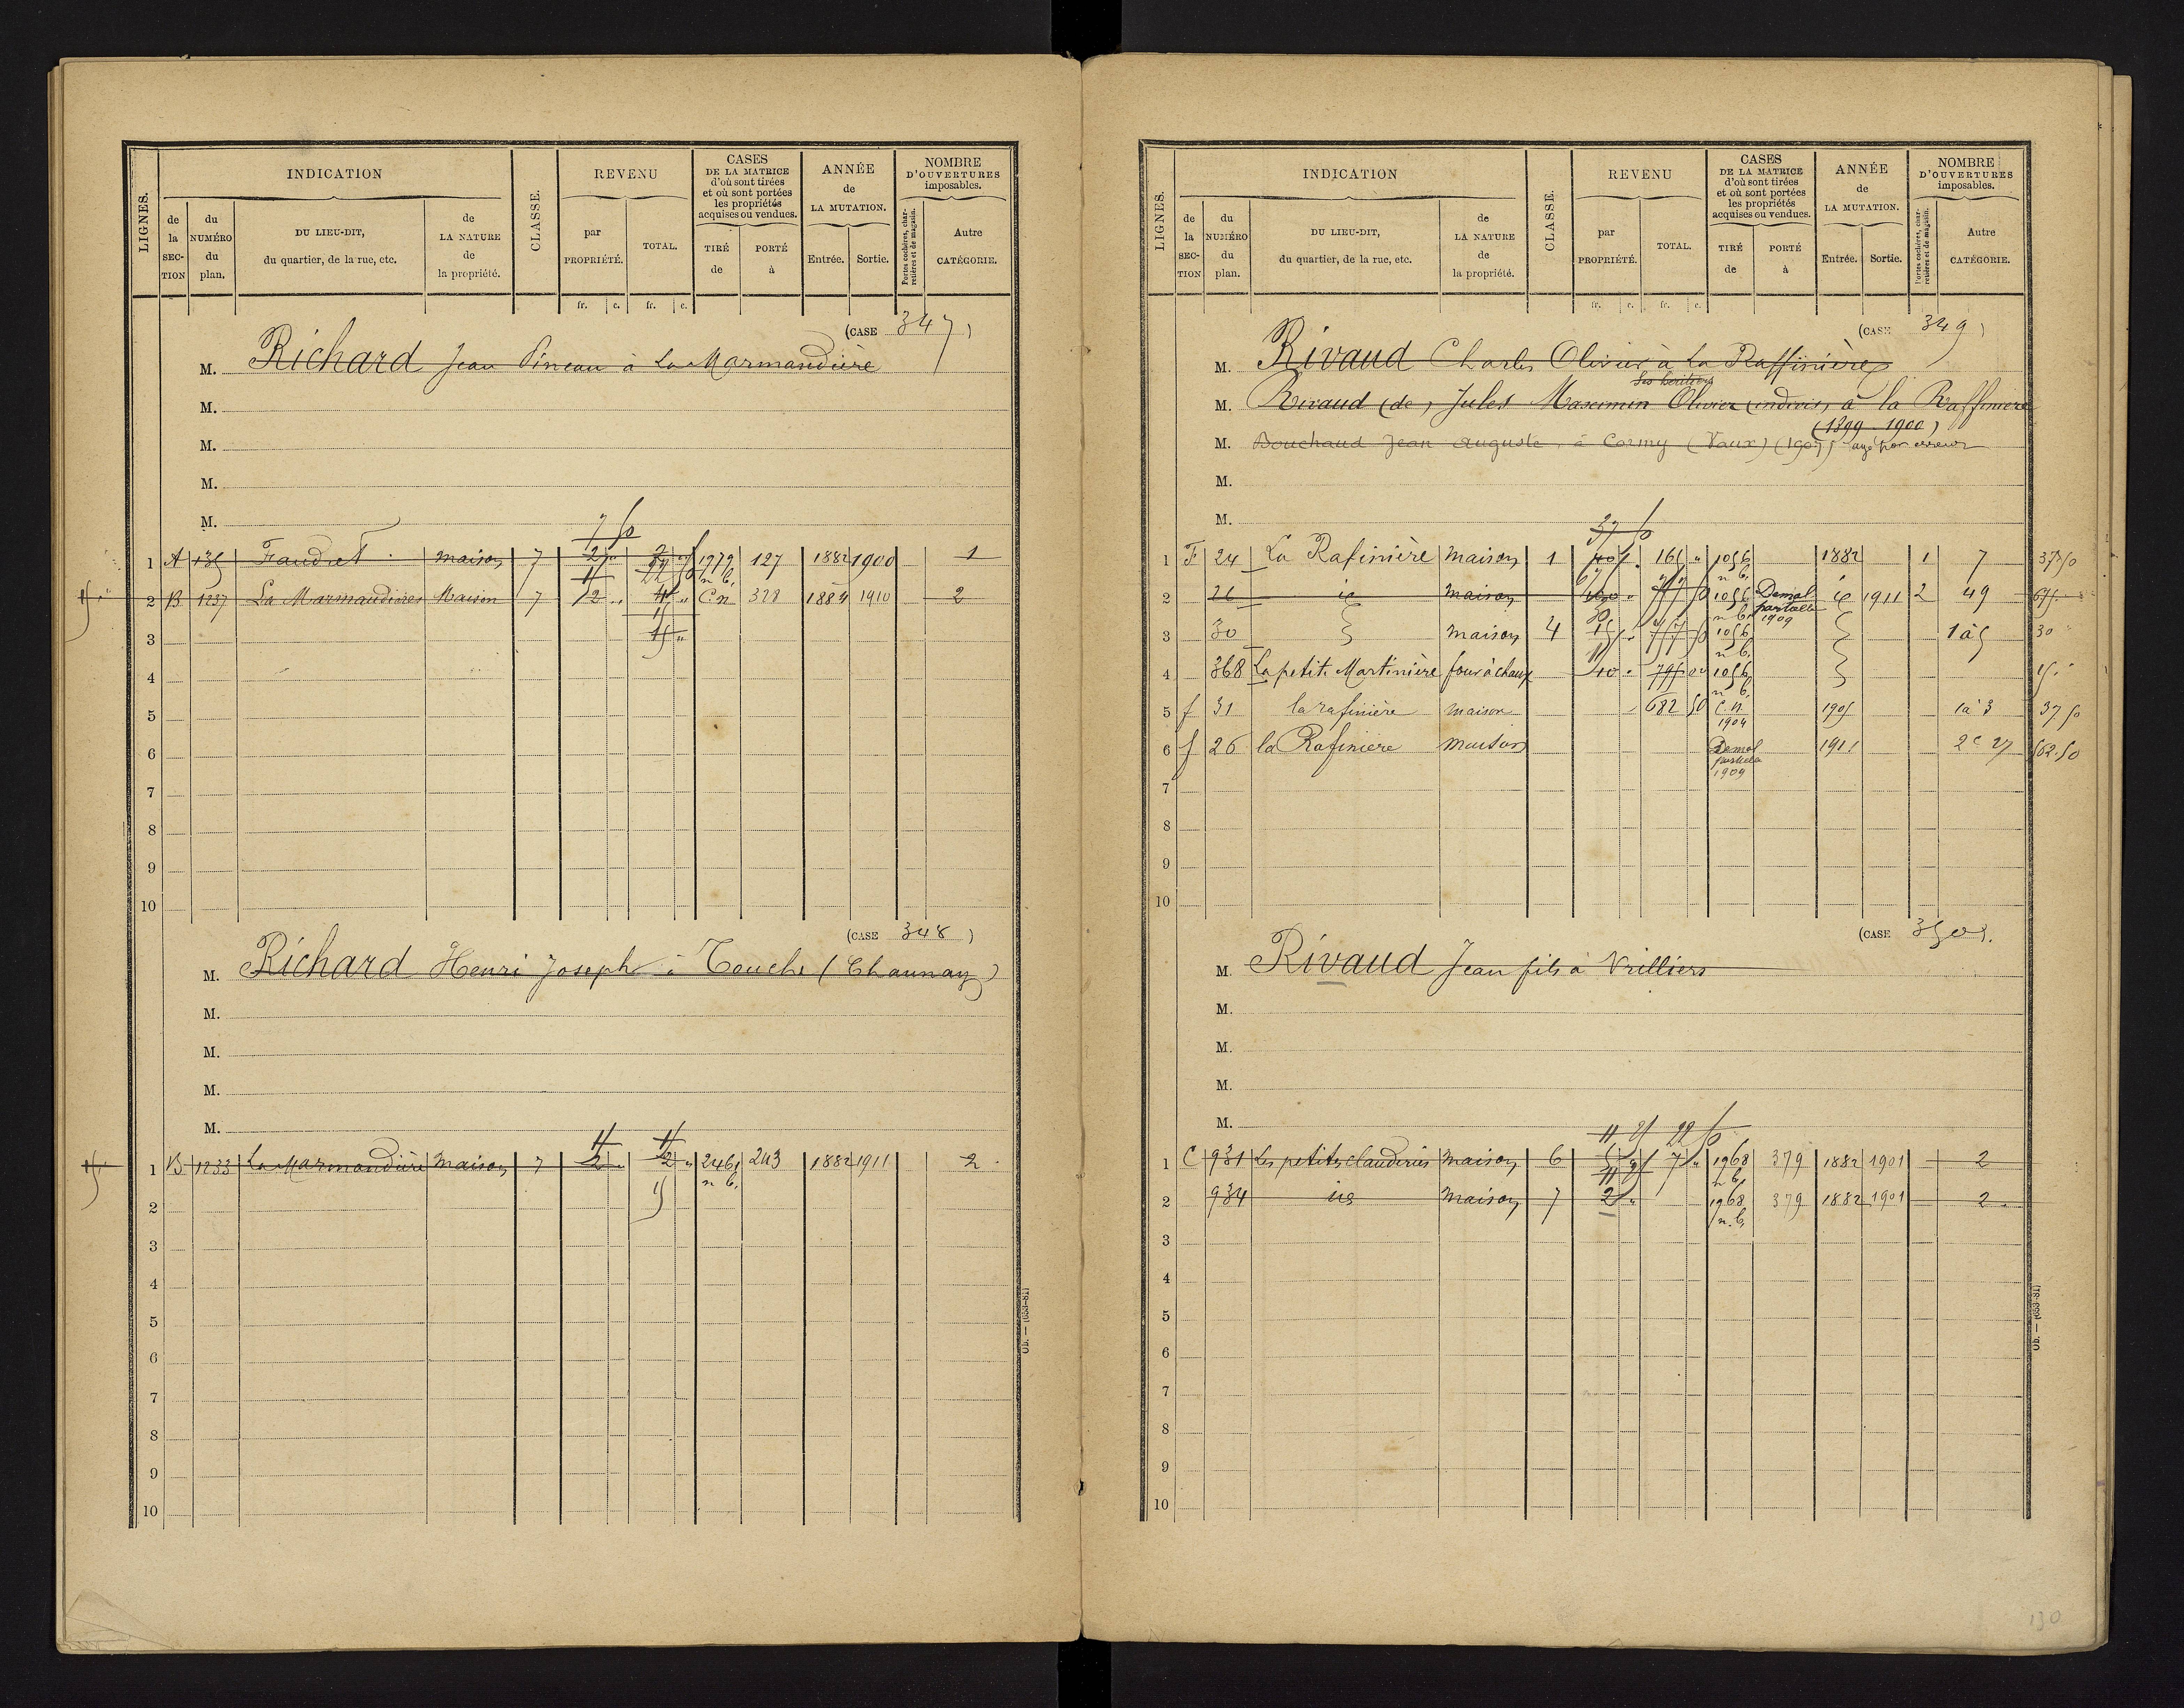 LIGNES.
INDICATION
de la SEC-TION
du NUMÉRO du plan.
DU LIEU-DIT, du quartier, de la rue, etc.
de LA NATURE de la propriété.
CLASSE.
REVENU
par PROPRIÉTÉ.
TOTAL.
CASES DE LA MATRICE d'où sont tirées et où sont portées les propriétés acquises ou vendues.
TIRÉ de
PORTÉ à
ANNÉE de LA MUTATION.
Entrée.
Sortie.
NOMBRE D'OUVERTURES imposables.
Portes cochères, char-retières et de magasin.
Autre CATÉGORIE.
fr. c. fr. c.
(CASE 347)
M. Richard Jean Pineau à La Marmandière
M.
M.
M.
M.
7 50
1 A 135 Faudret maison 7 1979 n b. 127 1882 1900 1
2 B 1237 La Marmandières Maison 7 2 " C.n 328 1884 1910 2
3
4
5
6
7
8
9
10
(CASE 348)
M. Richard Henri Joseph à Touche (Chaunay)
M.
M.
M.
M.
1 B 1233 La Marmandière Maison 7 2 " 2 " 2461 n b. 243 1882 1911 2
2
3
4
5
6
7
8
9
10
Ob. — (653-81)
LIGNES.
INDICATION
de la SEC-TION
du NUMÉRO du plan.
DU LIEU-DIT, du quartier, de la rue, etc.
de LA NATURE de la propriété.
CLASSE.
REVENU
par PROPRIÉTÉ.
TOTAL.
CASES DE LA MATRICE d'où sont tirées et où sont portées les propriétés acquises ou vendues.
TIRÉ de
PORTÉ à
ANNÉE de LA MUTATION.
Entrée.
Sortie.
NOMBRE D'OUVERTURES imposables.
Portes cochères, char-retières et de magasin.
Autre CATÉGORIE.
fr. c. fr. c.
(CASE 349)
M. Rivaud Charles Olivier à La Raffinière
Ses héritiers
M. Rivaud (de) Jules Maximin Olivier (indivis) à la Raffinière
(1899-1900)
M. Bouchaud Jean Auguste, à Cormy (Vaux) (1907) par erreur
M.
M.
37 50
1 F 24 La Rafinière maison 1 165 " 1056 n b. 1882 1 7 37 50
2 26 id maison 1056 n b. Démol partielle 1909 id 1911 2 49 675
3 30 maison 4 1056 n b. 1 à 5 30 "
4 368 La petite Martinière four à chaux 40 " 1056 n b. 15 "
5 f 31 la rafinière maison 682 50 C.n. 1904 1905 1 à 3 37 50
6 f 26 la Rafinière maison Démol partielle 1909 1911 2 c 27 562.50
7
8
9
10
(CASE 350)
M. Rivaud Jean fils à Vrilliers
M.
M.
M.
M.
11 25 22 50
1 C 931 Les petites clauderies maison 6 7 " 1968 n b. 379 1882 1901 2
2 934 id maison 7 2 " 1968 n.b. 379 1882 1901 2
3
4
5
6
7
8
9
10
Ob. — (653-81)
130